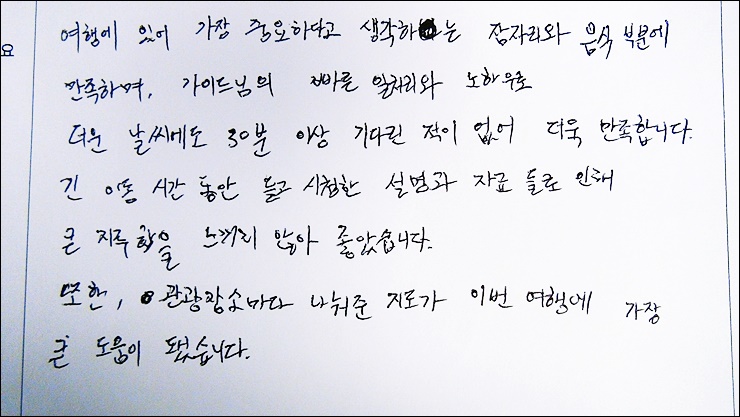 여행에 있어 가장 중요하다고 생각하는 잠자리와 음식 부분에
요
만족하며, 가이드님의 빠른 일처리와 노하우로
더운 날씨에도 30분 이상 기다린 적이 없어 더욱 만족합니다.
긴 이동 시간 동안 듣고 시험한 설명과 자료 들로 인해
큰 지루함을 느끼지 않아 좋았습니다.
또한, 관광장소마다 나눠준 지도가 이번 여행에 가장
큰 도움이 됐습니다.